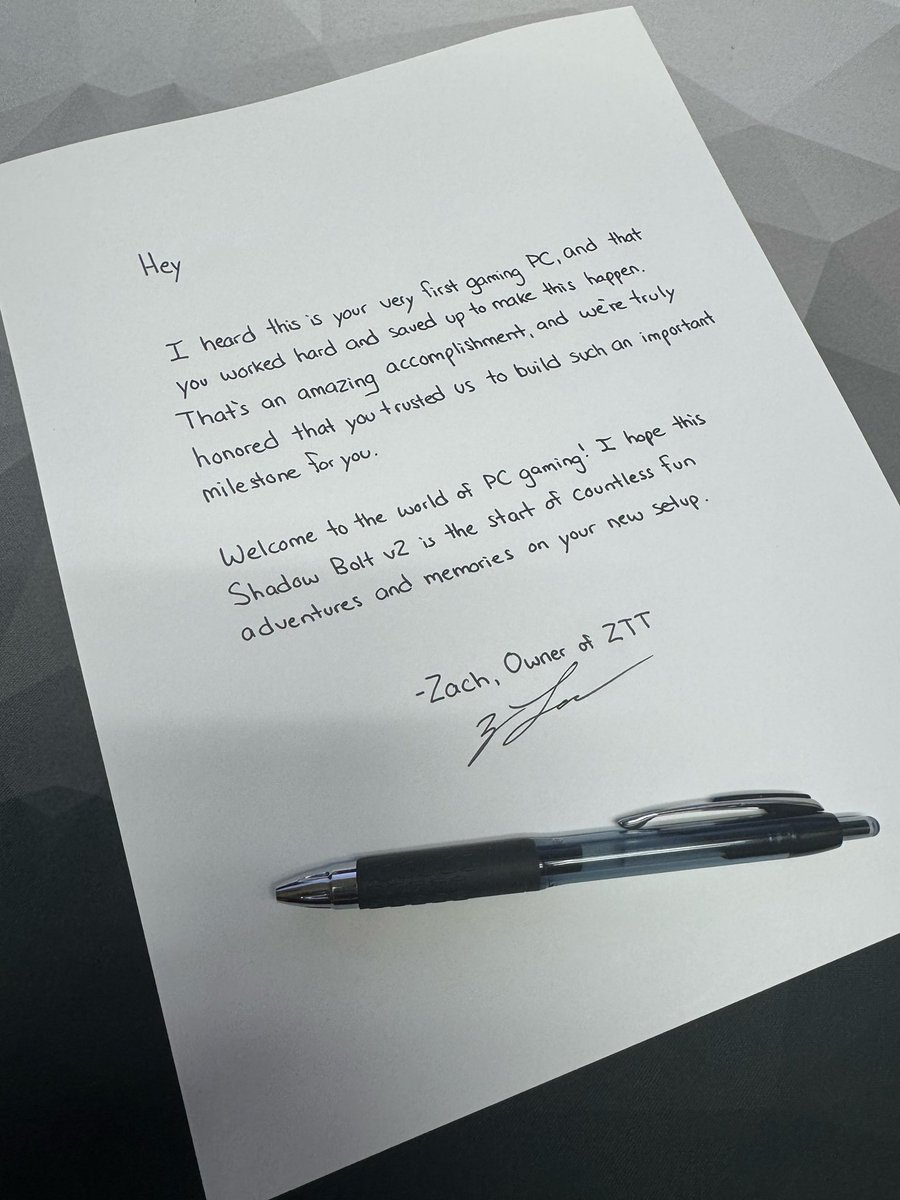 Hey
I heard this is your very first gaming PC, and that
you worked hard and saved up to make this happen.
That's an amazing accomplishment, and we're truly
honored that you trusted us to build such an important
milestone for you.
Welcome to the world of PC gaming! I hope this
Shadow Bolt v2 is the start of countless fun
adventures and memories on your new setup.
-Zach, Owner of ZTT